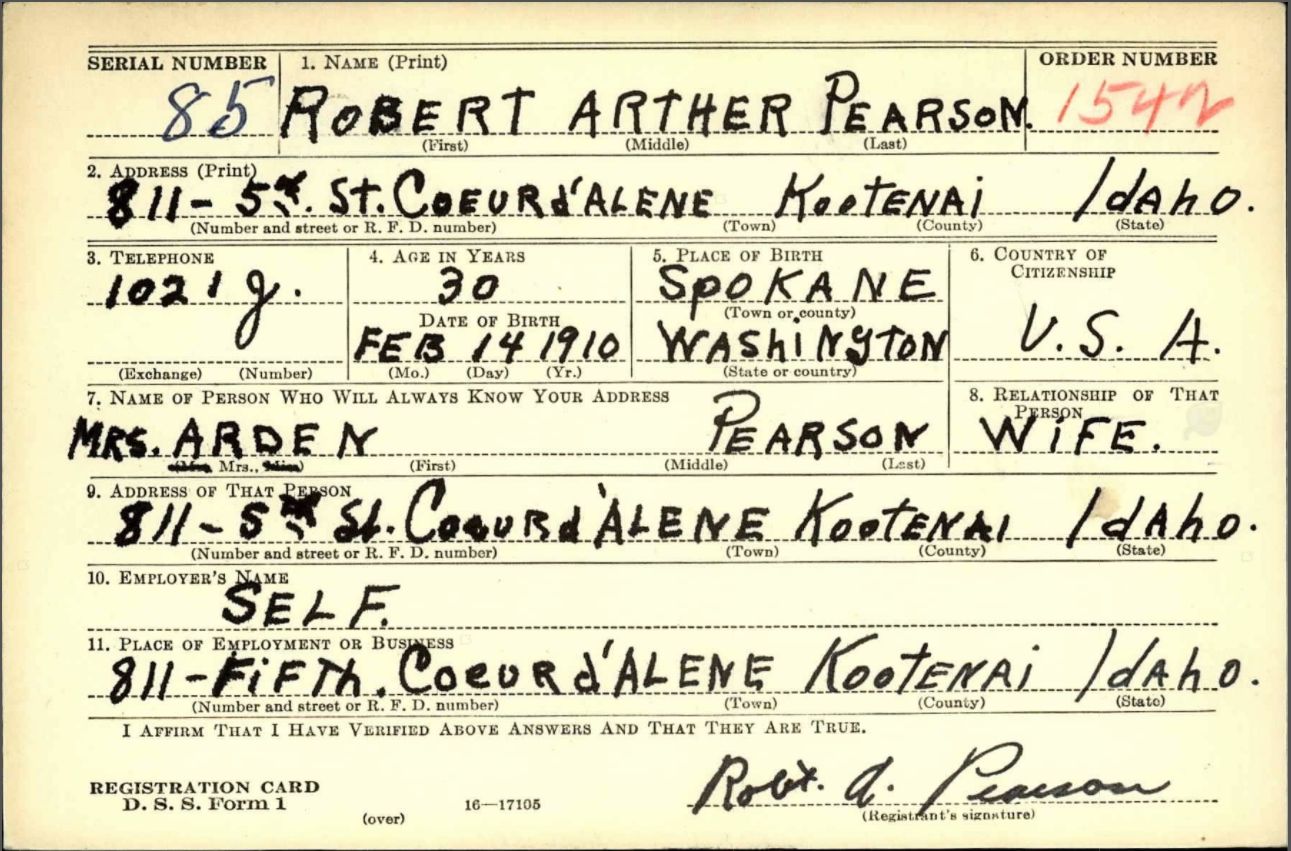 SERIAL NUMBER 1. NAME (Print) ORDER NUMBER
85 ROBERT ARTHER PEARSON. 1542
(First) (Middle) (Last)
2. ADDRESS (Print)
811 - 5th. St. COEUR d'ALENE KOOTENAI IdAhO.
(Number and street or R. F. D. number) (Town) (County) (State)
3. TELEPHONE 4. AGE IN YEARS 5. PLACE OF BIRTH 6. COUNTRY OF CITIZENSHIP
1021 J. 30 SpOKANE
(Town or county)
DATE OF BIRTH
FEB 14 1910 WAShiNgTON U.S.A.
(Exchange) (Number) (Mo.) (Day) (Yr.) (State or country)
7. NAME OF PERSON WHO WILL ALWAYS KNOW YOUR ADDRESS 8. RELATIONSHIP OF THAT PERSON
MRS. ARDEN PEARSON WiFE.
(Mr., Mrs., Miss) (First) (Middle) (Last)
9. ADDRESS OF THAT PERSON
811 - 5th St. Coeur d'ALENE KOOTENAI IdAhO.
(Number and street or R. F. D. number) (Town) (County) (State)
10. EMPLOYER'S NAME
SELF.
11. PLACE OF EMPLOYMENT OR BUSINESS
811 - FiFTh. Coeur d'ALENE KOOTENAi IdAhO.
(Number and street or R. F. D. number) (Town) (County) (State)
I AFFIRM THAT I HAVE VERIFIED ABOVE ANSWERS AND THAT THEY ARE TRUE.
REGISTRATION CARD
D. S. S. Form 1 16—17105 Robt. A. Pearson
(over) (Registrant's signature)